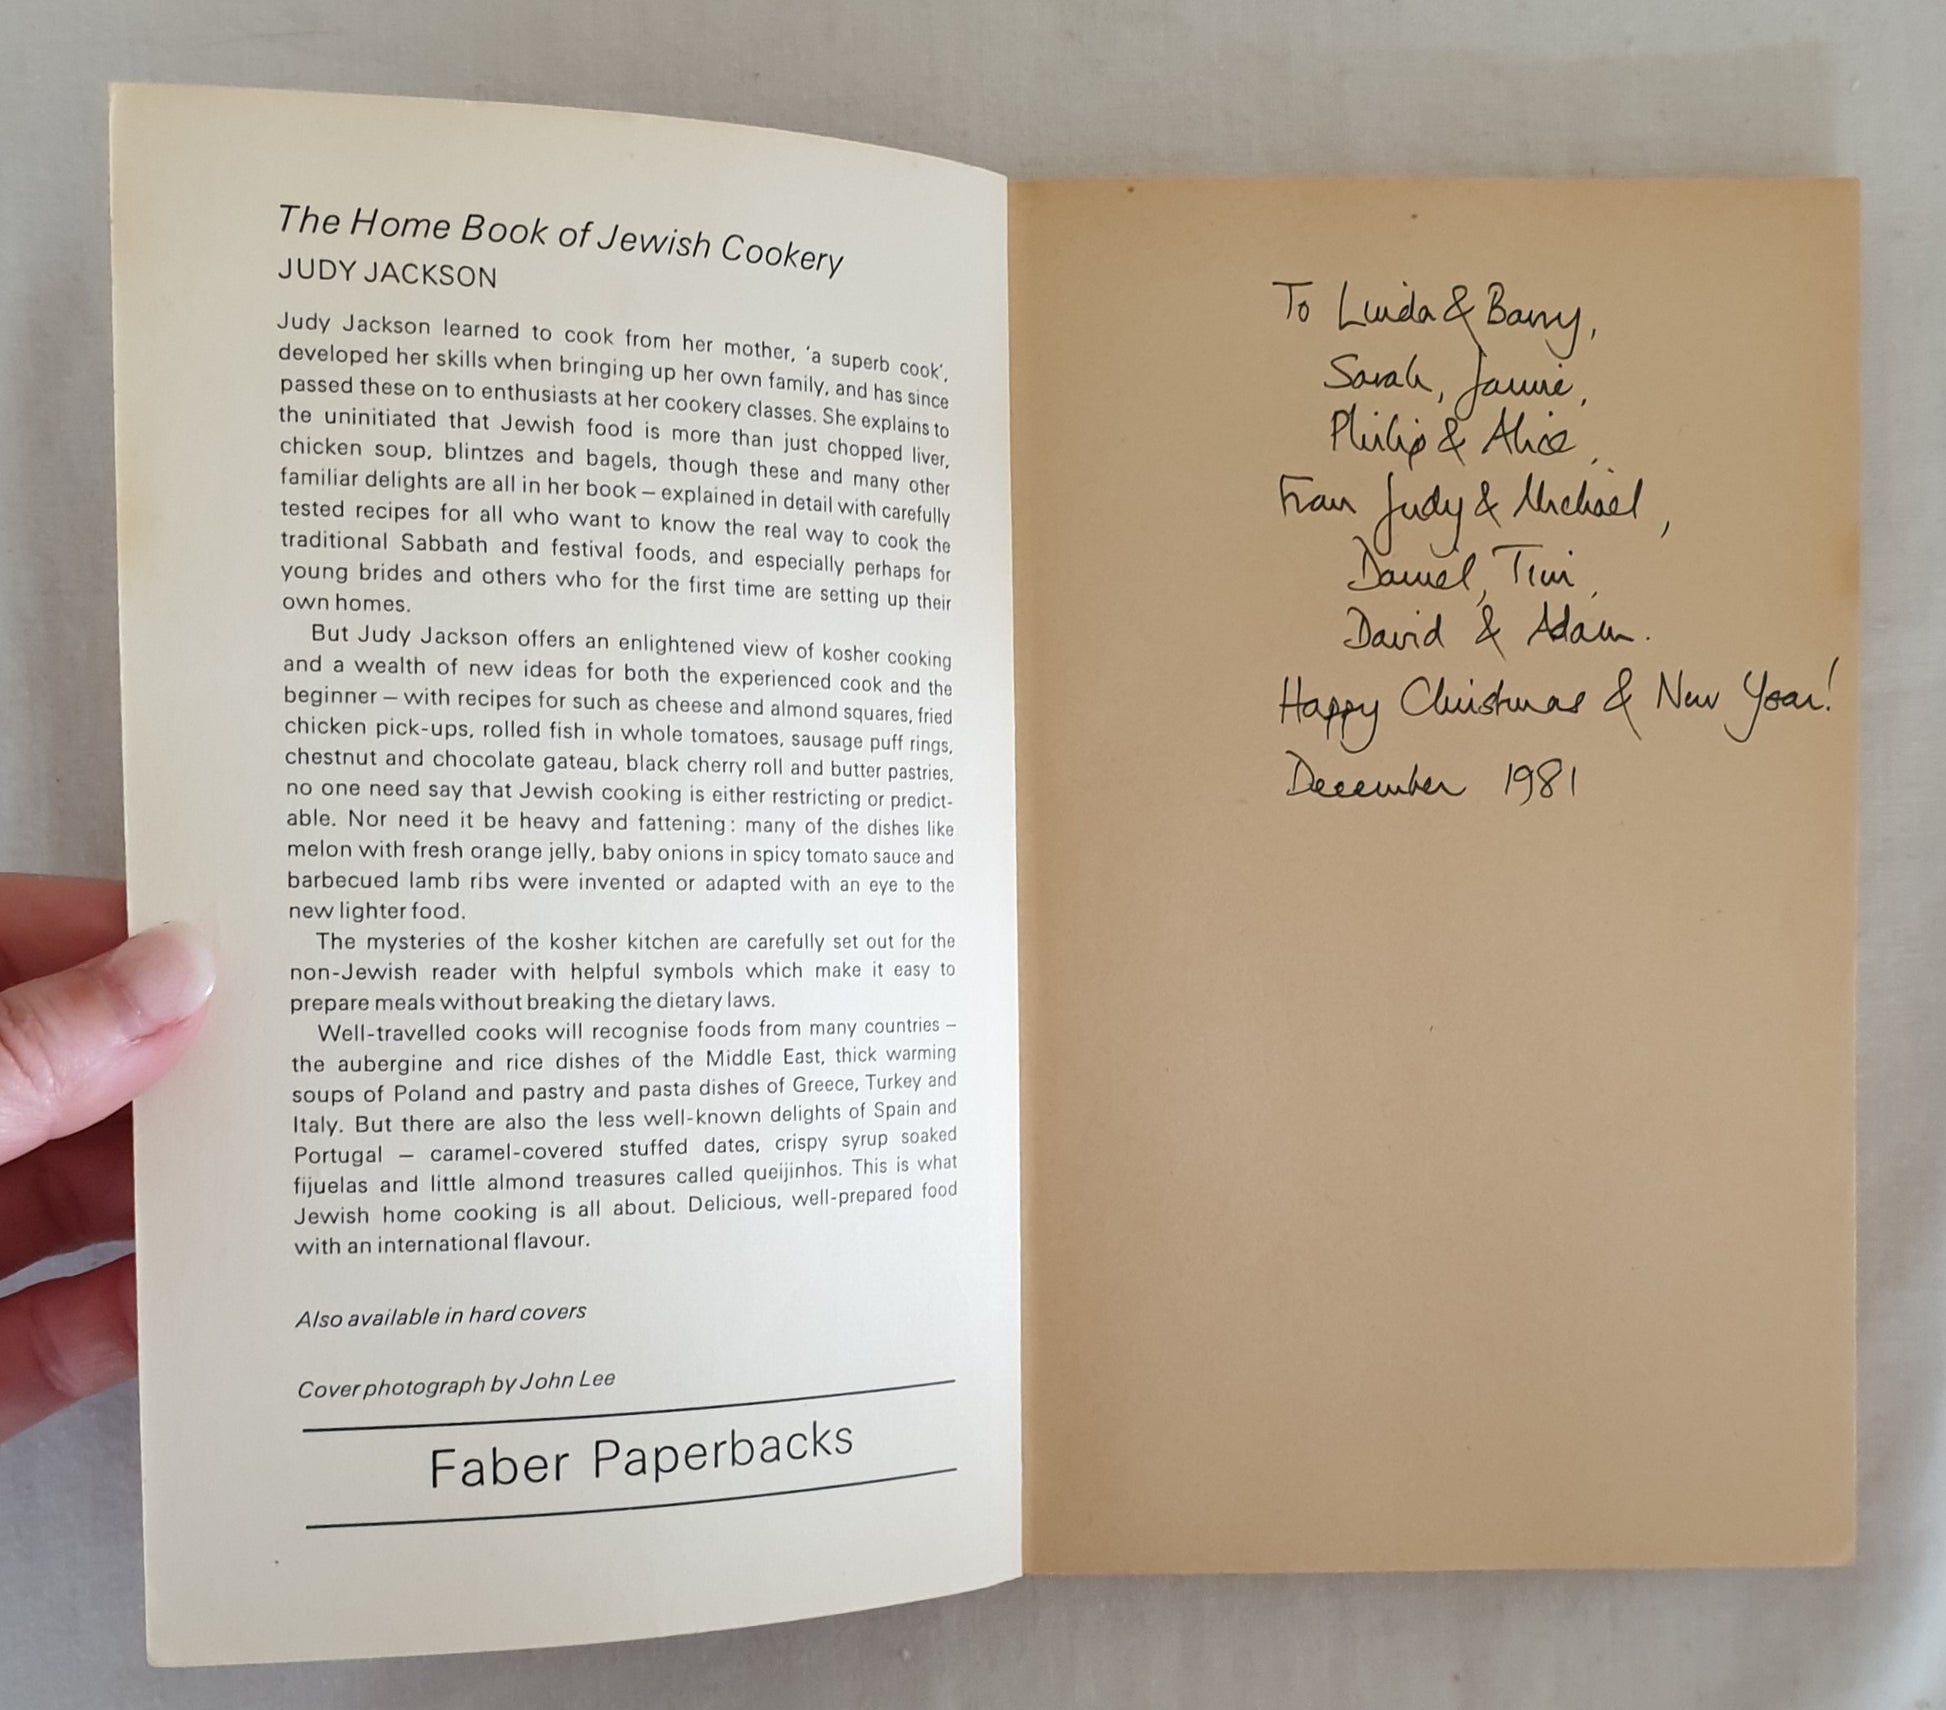 The Home Book of Jewish Cookery
JUDY JACKSON
Judy Jackson learned to cook from her mother, 'a superb cook',
developed her skills when bringing up her own family, and has since
passed these on to enthusiasts at her cookery classes. She explains to
the uninitiated that Jewish food is more than just chopped liver,
chicken soup, blintzes and bagels, though these and many other
familiar delights are all in her book – explained in detail with carefully
tested recipes for all who want to know the real way to cook the
traditional Sabbath and festival foods, and especially perhaps for
young brides and others who for the first time are setting up their
own homes.
But Judy Jackson offers an enlightened view of kosher cooking
and a wealth of new ideas for both the experienced cook and the
beginner – with recipes for such as cheese and almond squares, fried
chicken pick-ups, rolled fish in whole tomatoes, sausage puff rings,
chestnut and chocolate gateau, black cherry roll and butter pastries,
no one need say that Jewish cooking is either restricting or predict-
able. Nor need it be heavy and fattening: many of the dishes like
melon with fresh orange jelly, baby onions in spicy tomato sauce and
barbecued lamb ribs were invented or adapted with an eye to the
new lighter food.
The mysteries of the kosher kitchen are carefully set out for the
non-Jewish reader with helpful symbols which make it easy to
prepare meals without breaking the dietary laws.
Well-travelled cooks will recognise foods from many countries –
the aubergine and rice dishes of the Middle East, thick warming
soups of Poland and pastry and pasta dishes of Greece, Turkey and
Italy. But there are also the less well-known delights of Spain and
Portugal – caramel-covered stuffed dates, crispy syrup soaked
fijuelas and little almond treasures called queijinhos. This is what
Jewish home cooking is all about. Delicious, well-prepared food
with an international flavour.
Also available in hard covers
Cover photograph by John Lee
Faber Paperbacks
To Linda & Barry,
Sarah, Jamie,
Philip & Alice,
From Judy & Michael,
Daniel, Tim,
David & Adam.
Happy Christmas & New Year!
December 1981